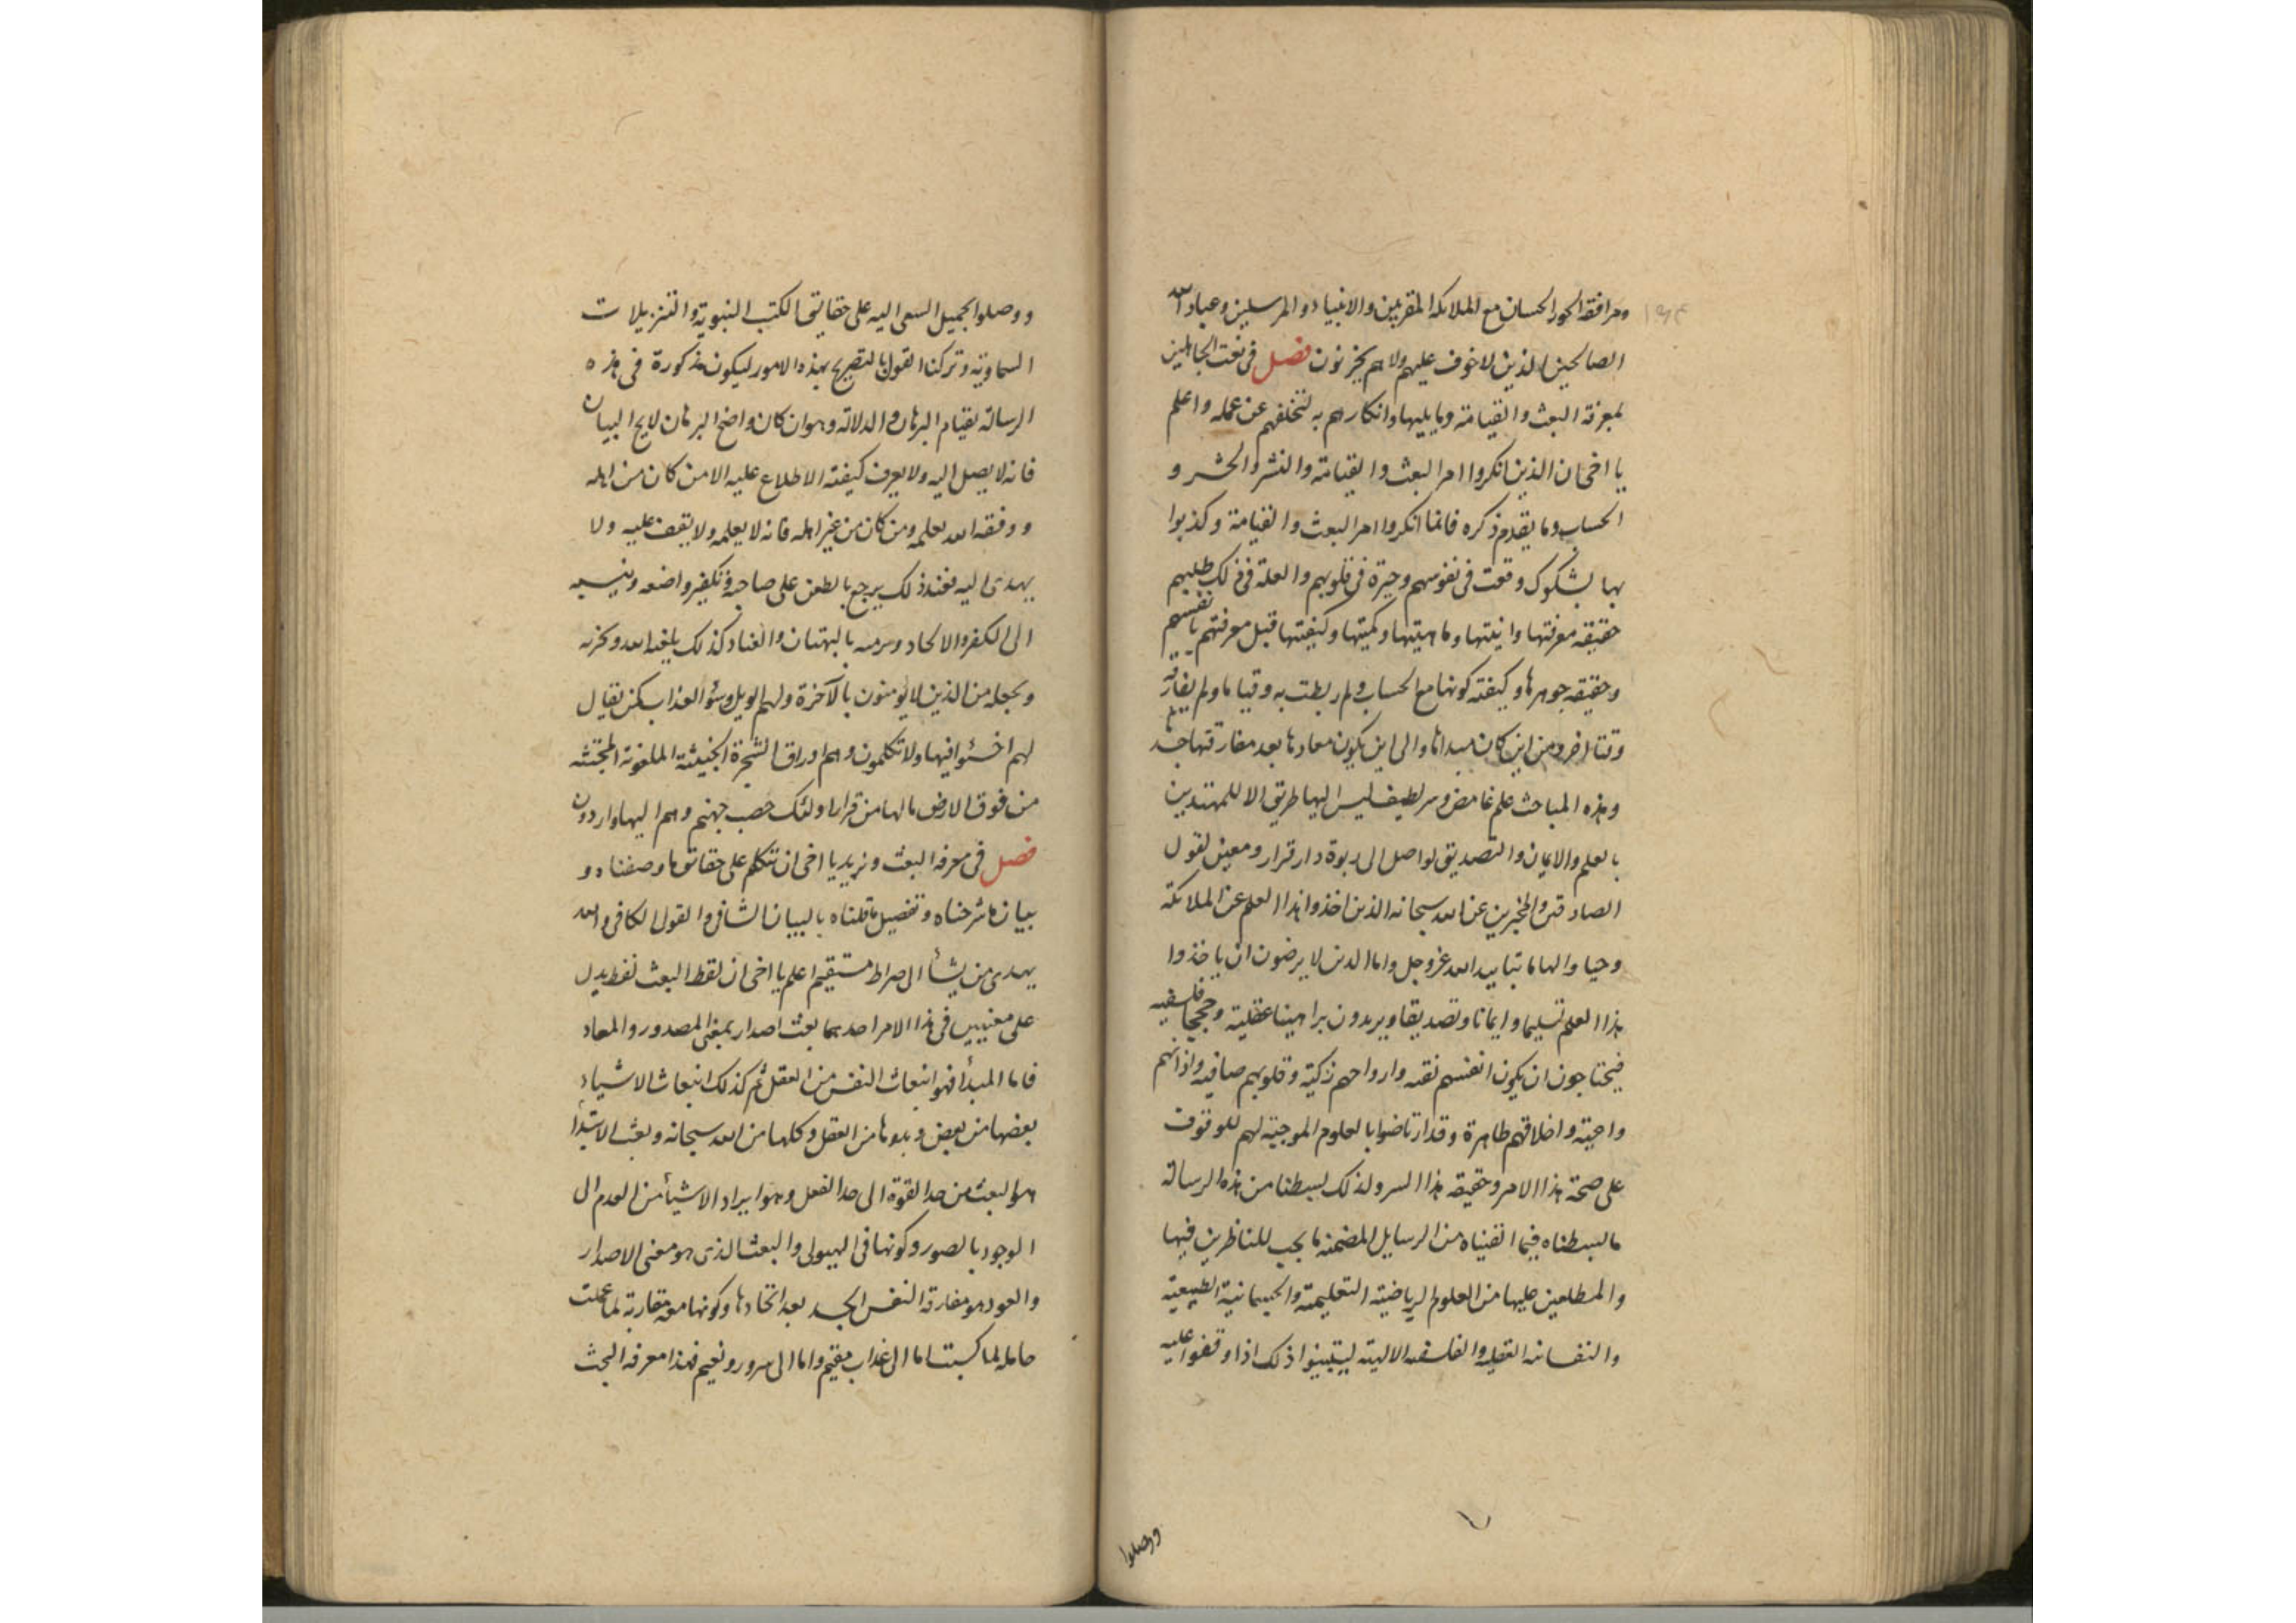 ومرافقة الحور الحسان مع الملائكة المقربين والانبياء والمرسلين وعباد الله
الصالحين الذين لا خوف عليهم ولا هم يحزنون فصل فى نعت الجاهلين
لمعرفة البعث والقيامة وما يليها وانكارهم به لتخلفهم عن عمله واعلم
يا اخى ان الذين انكروا امر البعث والقيامة والنشر والحشر و
الحساب وما يقدم ذكره فانما انكروا امر البعث والقيامة وكذبوا
بها لشكوك وقعت فى نفوسهم وحيرة فى قلوبهم والعلة فى ذلك طلبهم
حقيقة معرفتها وانيتها وماهيتها وكميتها وكيفيتها قبل معرفتهم بانفسهم
وحقيقة جوهرها وكيفية كونها مع الجسد ولم ربطت به وقتا ما ولم يفارقه
وقتا اخر ومن اين كان مبداها والى اين يكون معادها بعد مفارقتها
وهذه المباحث علم غامض وسر لطيف ليس اليها طريق الا للمهتدين
بالعلم والايمان والتصديق لواصل الى ربوة دار قرار ومعين لقول
الصادقين والمخبرين عن الله سبحانه الذين اخذوا هذا العلم عن الملائكة
وحيا والهاما بتاييد الله عز وجل واما الذين لا يرضون ان ياخذوا
هذا العلم تسليما وايمانا وتصديقا ويريدون براهينا عقلية وحججا فلسفيه
فيحتاجون ان يكون انفسهم نقيه وارواحهم زكية وقلوبهم صافيه واذانهم
واعية واخلاقهم طاهرة وقد ارتاضوا بالعلوم الموجبة لهم للوقوف
على صحة هذا الامر وحقيقة هذا السر ولذلك بسطنا من هذه الرسالة
ما بسطناه فيما القيناه من الرسايل المضمنه ما يجب للناظرين فيها
والمطلعين عليها من العلوم الرياضية التعليمية والجسمانية الطبيعية
والنفسانية العقلية والفلسفه الالهية ليتبينوا ذلك اذا وقفوا عليه
ووصلوا
ووصلوا بجميل السعى اليه على حقايق الكتب النبوية والتنزيلات
السماوية وتركنا القول بالتصريح بهذه الامور ليكون مذكورة فى هذه
الرسالة بقيام البرهان والدلالة وهو ان كان واضح البرهان لايح البيان
فانه لا يصل اليه ولا يعرف كيفية الاطلاع عليه الا من كان من اهله
ووفقه الله بعلمه ومن كان من غير اهله فانه لا يعلمه ولا يقف عليه ولا
يهدى اليه فعند ذلك يرجع بالطعن على صاحبه وتكفير واضعه وينسبه
الى الكفر والالحاد ويرميه بالبهتان والعناد كذلك يلعنه الله ويخزيه
ويجعله من الذين لا يومنون بالآخرة ولهم الويل وسؤ العذاب كمن يقال
لهم اخسئوا فيها ولا تكلمون وهم اوراق الشجرة الخبيثة الملعونة المجتثه
من فوق الارض مالها من قرار اولئك حصب جهنم وهم اليها واردون
فصل فى معرفة البعث ونريد يا اخى ان نتكلم على حقايق ما وصفناه و
بيان ما شرحناه وتفصيل ما قلناه بالبيان الشافى والقول الكافى والله
يهدى من يشأ الى صراط مستقيم اعلم يا اخى ان لفظ البعث لفظ يدل
على معنيين فى هذا الامر احدهما بعث اصدار بمعنى المصدور والمعاد
فاما المبدأ فهو انبعاث النفس من العقل ثم كذلك انبعاث الاشياء
بعضها من بعض وبدوها من العقل وكلها من الله سبحانه وبعث الابتدا
هو البعث من حد القوة الى حد الفعل وهو ايراد الاشيأ من العدم الى
الوجود بالصور وكونها فى الهيولى والبعث الذى هو معنى الاصدار
والعود هو مفارقة النفس الجسد بعد اتحادها وكونها معه مقارنة لما عملت
حامله لما كسبت اما الى عذاب مقيم واما الى سرور ونعيم فهذا معرفة البعث